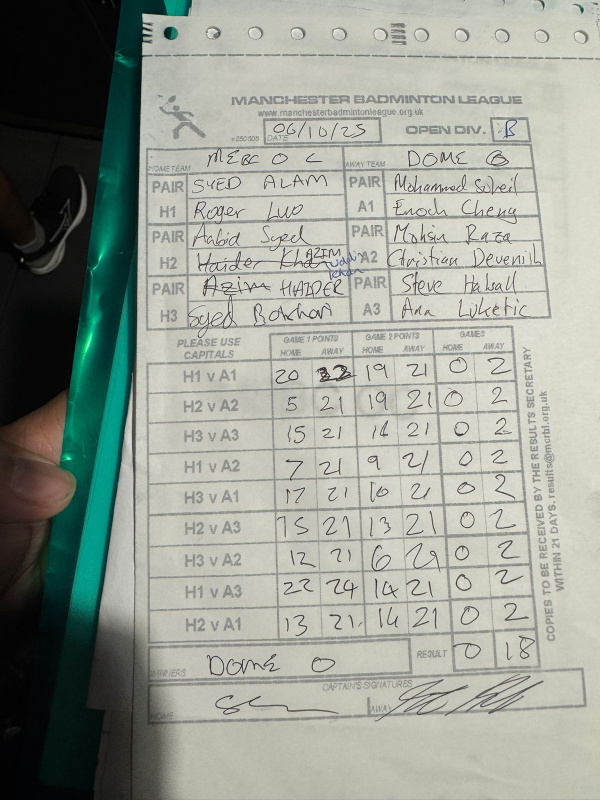 MANCHESTER BADMINTON LEAGUE
www.manchesterbadmintonleague.org.uk
DATE 06/10/25 OPEN DIV. B
HOME TEAM MEBC O C AWAY TEAM DOME
PAIR SYED ALAM PAIR Mohammed Soheil
H1 Roger Luo A1 Enoch Cheng
PAIR Aabid Syed PAIR Mohsin Raza
H2 Haider Khan AZIM A2 Christian Devenish
PAIR Azim HAIDER PAIR Steve Halsall
H3 Syed A3 Ana Luketic
PLEASE USE CAPITALS GAME 1 POINTS GAME 2 POINTS GAMES
HOME AWAY HOME AWAY HOME AWAY
H1 v A1 20 22 19 21 0 2
H2 v A2 5 21 19 21 0 2
H3 v A3 15 21 21 0 2
H1 v A2 7 21 9 21 0 2
H3 v A1 17 21 10 21 0 2
H2 v A3 15 21 13 21 0 2
H3 v A2 12 21 6 21 0 2
H1 v A3 22 24 14 21 0 2
H2 v A1 13 21 14 21 0 2
WINNERS DOME RESULT 0 18
CAPTAIN'S SIGNATURES
HOME AWAY
COPIES TO BE RECEIVED BY THE RESULTS SECRETARY
WITHIN 21 DAYS. results@mcrbl.org.uk